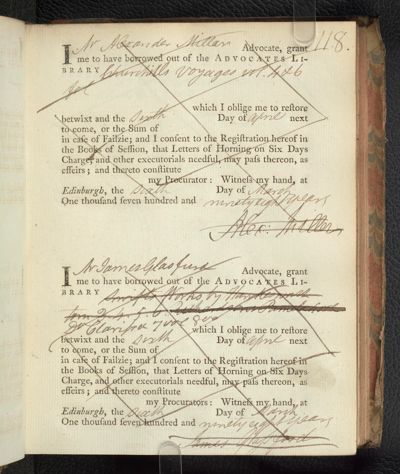 118.
I Mr Alexander Millar Advocate, grant
me to have borrowed out of the ADVOCATES LI-
BRARY Churchills Voyages vol. 4 & 6
fol
which I oblige me to restore
betwixt and the Sixth Day of April next
to come, or the Sum of
in case of Failzie; and I consent to the Registration hereof in
the Books of Session, that Letters of Horning on Six Days
Charge, and other executorials needful, may pass thereon, as
effeirs; and thereto constitute
my Procurator: Witness my hand, at
Edinburgh, the Sixth Day of March
One thousand seven hundred and ninety eight years
Alex: Millar
I Mr James Glasfurd Advocate, grant
me to have borrowed out of the ADVOCATES LI-
BRARY Swifts Works by
Clarissa 7 vol 8vo which I oblige me to restore
betwixt and the Sixth Day of April next
to come, or the Sum of
in case of Failzie; and I consent to the Registration hereof in
the Books of Session, that Letters of Horning on Six Days
Charge, and other executorials needful, may pass thereon, as
effeirs; and thereto constitute
my Procurator: Witness my hand, at
Edinburgh, the Sixth Day of March
One thousand seven hundred and ninety eight years
James Glasfurd